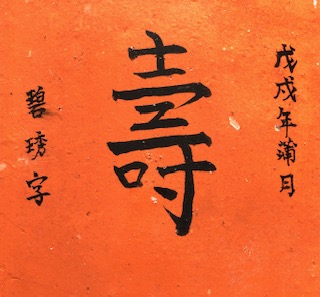 戊戌年蒲月
壽
碧琇字